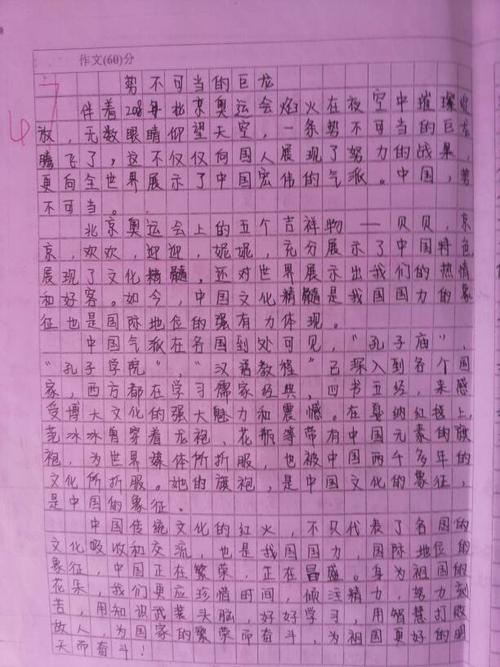 作文(60)分
势不可当的巨龙
伴着2008年北京奥运会焰火在夜空中璀璨
放，无数眼睛仰望天空，一条势不可当的巨龙
腾飞了，这不仅仅向国人展现了努力的战果，
更向全世界展示了中国宏伟的气派。中国，势
不可当。
北京奥运会上的五个吉祥物——贝贝，京
京，欢欢，迎迎，妮妮，充分展示了中国特色
展现了文化精髓，还对世界展示出我们的热情
和好客。如今，中国文化精髓是我国国力的象
征也是国际地位的强有力体现。
中国气派在各国到处可见，“孔子庙”，
“孔子学院”，“汉语教程”已深入到各个国
家，西方都在学习儒家经典，四书五经，来感
受博大文化的强大魅力和震憾。在戛纳红毯上，
范冰冰身穿着龙袍，花瓶等带有中国元素的旗
袍，为世界媒体所折服，也被中国两千多年的
文化所折服。她的旗袍，是中国文化的象征，
是中国的象征。
中国传统文化的红火，不只代表了各国的
文化吸收和交流，也是我国国力，国际地位的
象征，中国正在繁荣，正在昌盛。身为祖国的
花朵，我们更应珍惜时间，倾注精力，努力刻
苦，用知识武装头脑，好好学习，用智慧打败
敌人，为国家的繁荣而奋斗，为祖国更好的明
天而奋斗！